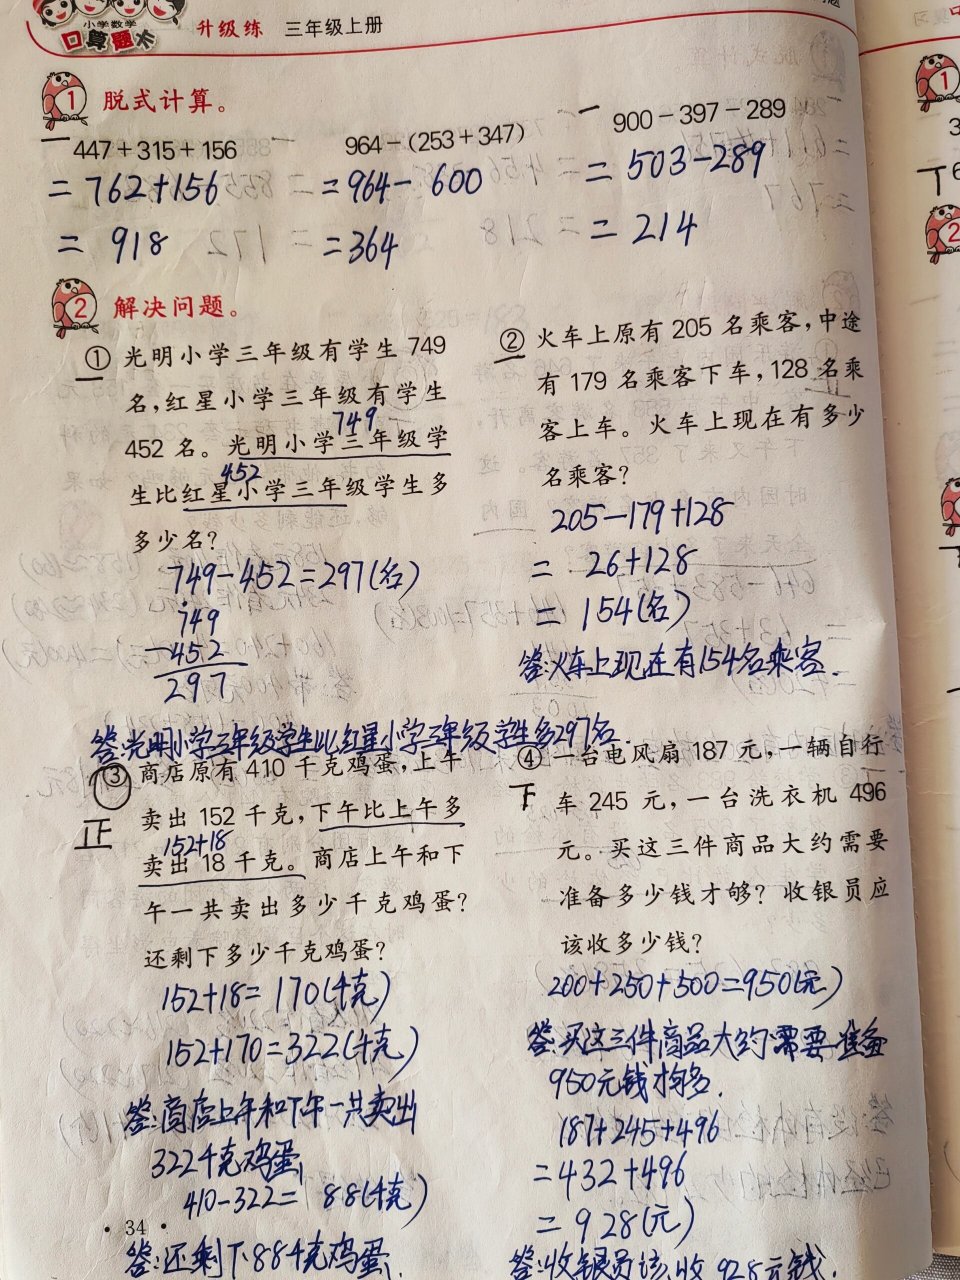 小学数学
口算题卡
升级练 三年级上册
1 脱式计算。
447+315+156
=762+156
=918
964-(253+347)
=964-600
=364
900-397-289
=503-289
=214
2 解决问题。
① 光明小学三年级有学生 749
名,红星小学三年级有学生
749
452 名。光明小学三年级学
452
生比红星小学三年级学生多
多少名?
749-452=297(名)
749
-452
297
答:光明小学三年级学生比红星小学三年级学生多297名.
② 火车上原有 205 名乘客,中途
有 179 名乘客下车,128 名乘
客上车。火车上现在有多少
名乘客?
205-179+128
= 26+128
= 154(名)
答:火车上现在有154名乘客.
③ 商店原有 410 千克鸡蛋,上午
正
卖出 152 千克,下午比上午多
152+18
卖出 18 千克。商店上午和下
午一共卖出多少千克鸡蛋?
还剩下多少千克鸡蛋?
152+18=170(千克)
152+170=322(千克)
答:商店上午和下午一共卖出
322千克鸡蛋,
410-322= 88(千克)
答:还剩下88千克鸡蛋.
④ 一台电风扇 187 元,一辆自行
下
车 245 元,一台洗衣机 496
元。买这三件商品大约需要
准备多少钱才够?收银员应
该收多少钱?
200+250+500=950(元)
答:买这三件商品大约需要准备
950元钱才够.
187+245+496
=432+496
=928(元)
答:收银员该收928元钱.
· 34 ·